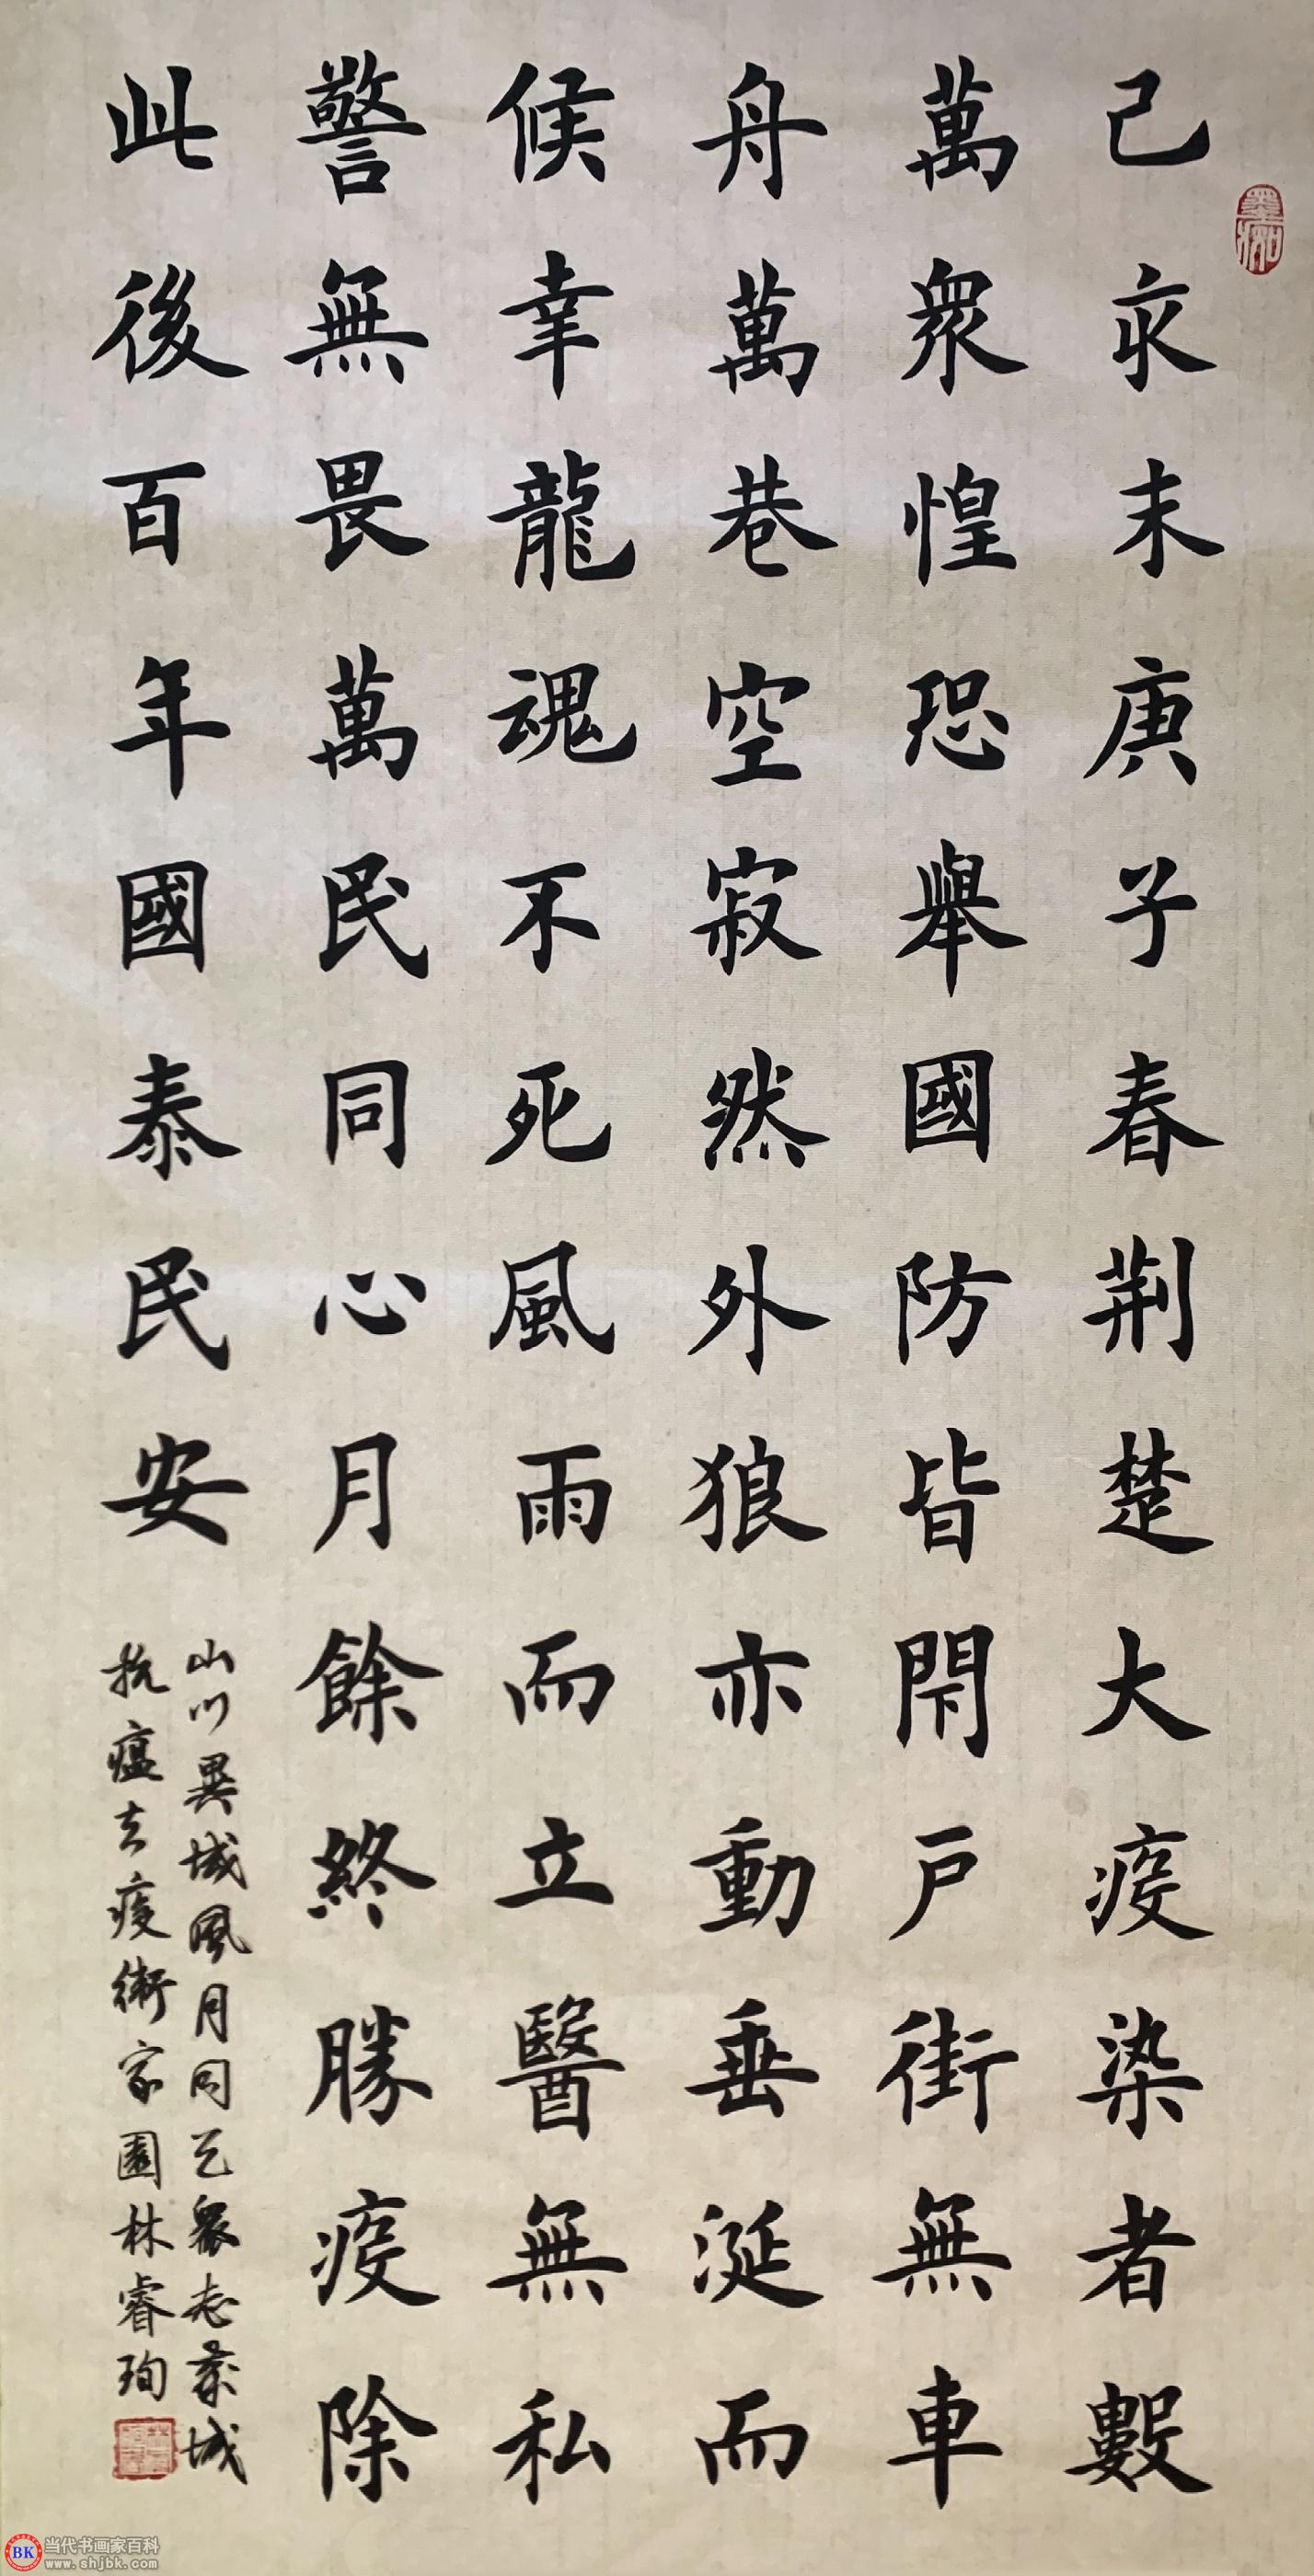 己亥末庚子春荆楚大疫染者數
萬眾惶恐舉國防皆閉戶街無車
舟萬巷空寂然外狼亦動垂涎而
候幸龍魂不死風雨而立醫無私
警無畏萬民同心月餘終勝疫除
此後百年國泰民安
山川異域風月同天眾志成城
抗瘟去疫衛家園林睿珣
BK
当代书画家百科
www.shjbk.com